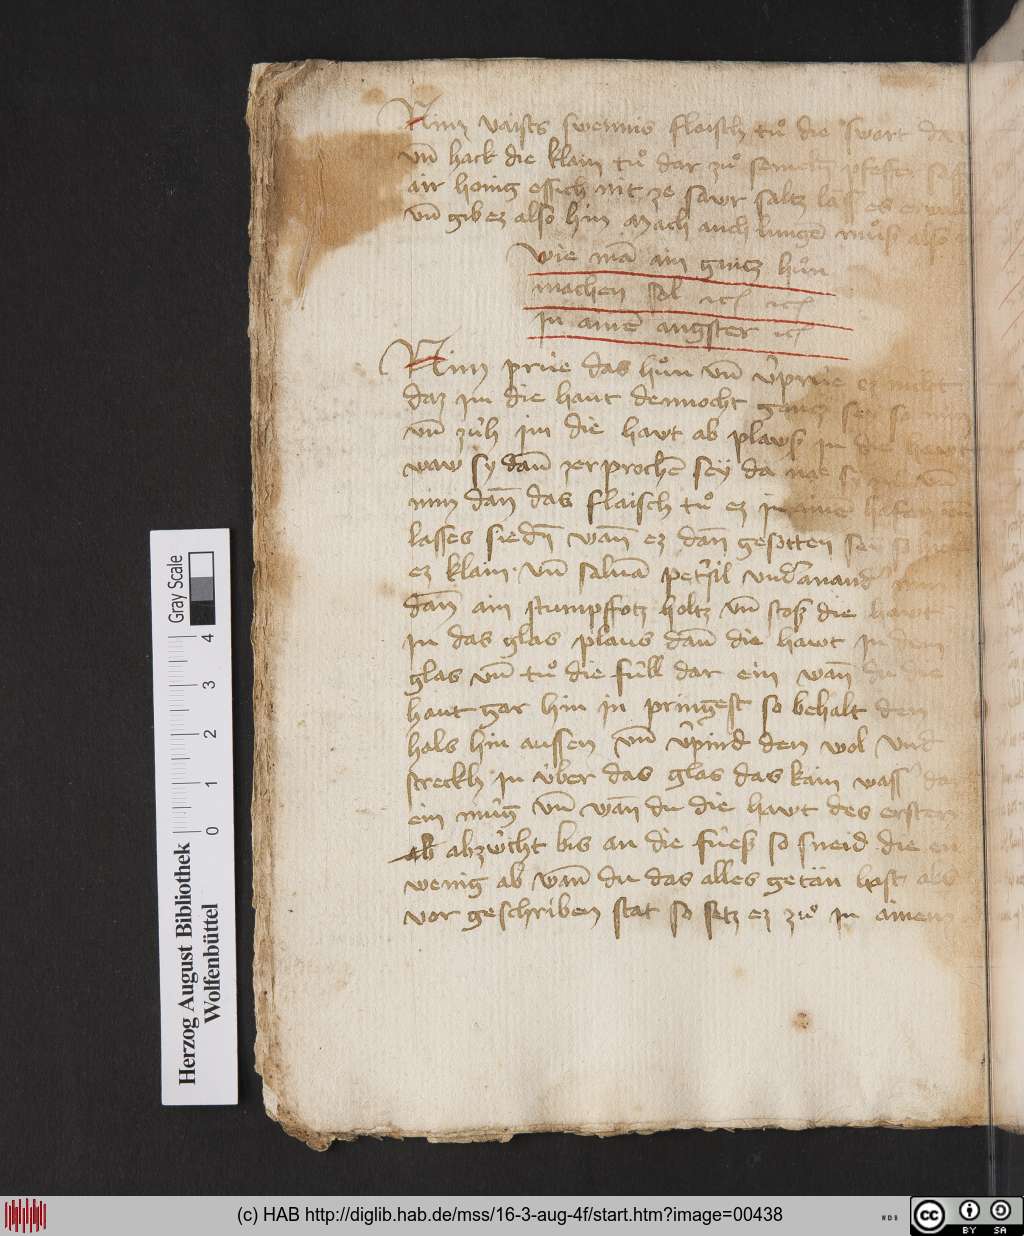 Nim vaists sweinis flaisch tuͦ die swart dar
vn̄ hack die klain tuͦ dar zuͦ
air honig essich nit ze sawr saltz laß es
vn̄ gib ez also hin Mach auch lungē muͦß also
wie mā ain gantz huͦn
machen sol ꝛcͣ ꝛcͣ
in ainē angster ꝛcͣ
Nim prüe das huͦn vn̄ v̓prüe ez nicht
daz im die haut dennocht gantz sey
vn̄ züh im die hawt ab plaws in die hawt
waw sy dan̄ zerprochē sey da nae sy
nim dan̄ das flaisch tuͦ ez in ainē hafen
lasses siedn̄ wan̄ ez dan̄ gesotten
ez klain vn̄ saluā pet̓sil vnd̓anand̓ nim
dan̄ ain stumpffotz holtz vn̄ stoß die hawt
in das glas plaws dan̄ die hawt in dem
glas vn̄ tuͦ die füll dar ein wan̄ du die
haut gar hin in pringest so behalt den
hals hin aussen vn̄ v̓pind den wol vnd
streckh in v̈ber das glas das kain wass̓ dar
ein müg vn̄ wan̄ du die hawt des ersten
ab abzv̈cht bis an die füeß so sneid die ein
wenig ab wan̄ du das alles getän hast als
vor geschriben stat so setz ez zuͦ in ainem
Herzog August Bibliothek
Wolfenbüttel
Gray Scale
0 1 2 3 4
(c) HAB http://diglib.hab.de/mss/16-3-aug-4f/start.htm?image=00438
WDB
cc BY SA